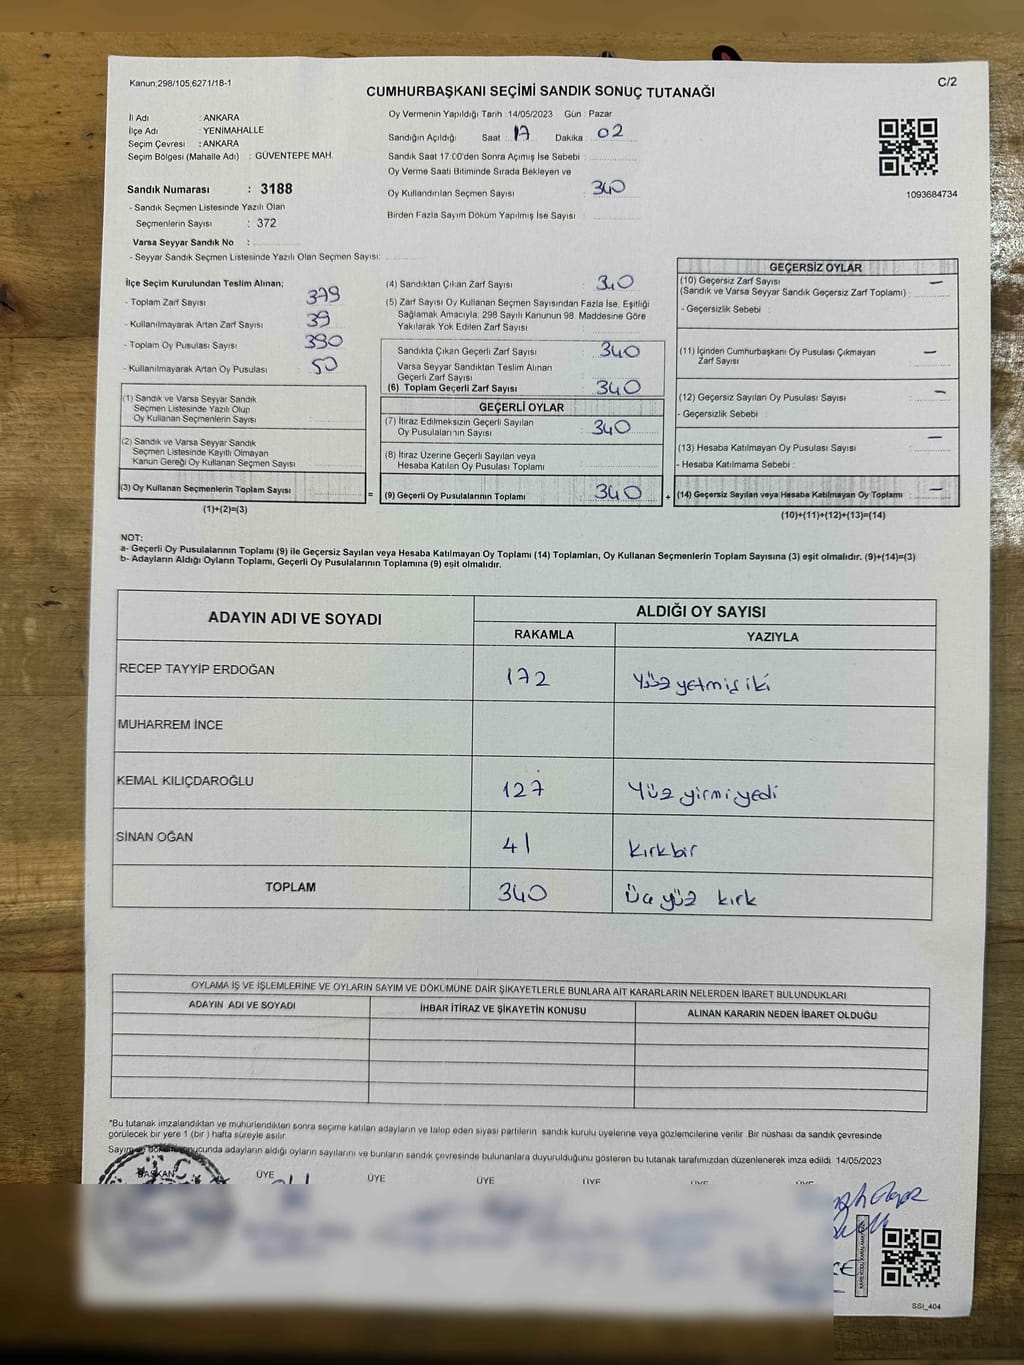 Kanun,298/105,6271/18-1
C/2
CUMHURBAŞKANI SEÇİMİ SANDIK SONUÇ TUTANAĞI
İl Adı : ANKARA
İlçe Adı : YENİMAHALLE
Seçim Çevresi : ANKARA
Seçim Bölgesi (Mahalle Adı) : GÜVENTEPE MAH.
Sandık Numarası : 3188
- Sandık Seçmen Listesinde Yazılı Olan
Seçmenlerin Sayısı : 372
Varsa Seyyar Sandık No :
- Seyyar Sandık Seçmen Listesinde Yazılı Olan Seçmen Sayısı:
Oy Vermenin Yapıldığı Tarih :14/05/2023 Gün : Pazar
Sandığın Açıldığı Saat : 17 Dakika : 02
Sandık Saat 17:00'den Sonra Açımış İse Sebebi :
Oy Verme Saati Bitiminde Sırada Bekleyen ve
Oy Kullandırılan Seçmen Sayısı : 340
Birden Fazla Sayım Döküm Yapılmış İse Sayısı :
1093684734
İlçe Seçim Kurulundan Teslim Alınan;
- Toplam Zarf Sayısı : 379
- Kullanılmayarak Artan Zarf Sayısı : 39
- Toplam Oy Pusulası Sayısı : 390
- Kullanılmayarak Artan Oy Pusulası : 50
(1) Sandık ve Varsa Seyyar Sandık
Seçmen Listesinde Yazılı Olup
Oy Kullanan Seçmenlerin Sayısı :
(2) Sandık ve Varsa Seyyar Sandık
Seçmen Listesinde Kayıtlı Olmayan
Kanun Gereği Oy Kullanan Seçmen Sayısı :
(3) Oy Kullanan Seçmenlerin Toplam Sayısı :
(1)+(2)=(3)
(4) Sandıktan Çıkan Zarf Sayısı : 340
(5) Zarf Sayısı Oy Kullanan Seçmen Sayısından Fazla İse, Eşitliği
Sağlamak Amacıyla; 298 Sayılı Kanunun 98. Maddesine Göre
Yakılarak Yok Edilen Zarf Sayısı :
Sandıkta Çıkan Geçerli Zarf Sayısı : 340
Varsa Seyyar Sandıktan Teslim Alınan
Geçerli Zarf Sayısı :
(6) Toplam Geçerli Zarf Sayısı : 340
GEÇERLİ OYLAR
(7) İtiraz Edilmeksizin Geçerli Sayılan
Oy Pusulalarının Sayısı : 340
(8) İtiraz Üzerine Geçerli Sayılan veya
Hesaba Katılan Oy Pusulası Toplamı :
= (9) Geçerli Oy Pusulalarının Toplamı : 340 +
GEÇERSİZ OYLAR
(10) Geçersiz Zarf Sayısı
(Sandık ve Varsa Seyyar Sandık Geçersiz Zarf Toplamı) : —
- Geçersizlik Sebebi :
(11) İçinden Cumhurbaşkanı Oy Pusulası Çıkmayan
Zarf Sayısı : —
(12) Geçersiz Sayılan Oy Pusulası Sayısı : —
- Geçersizlik Sebebi :
(13) Hesaba Katılmayan Oy Pusulası Sayısı : —
- Hesaba Katılmama Sebebi :
(14) Geçersiz Sayılan veya Hesaba Katılmayan Oy Toplamı : —
(10)+(11)+(12)+(13)=(14)
NOT:
a- Geçerli Oy Pusulalarının Toplamı (9) ile Geçersiz Sayılan veya Hesaba Katılmayan Oy Toplamı (14) Toplamları, Oy Kullanan Seçmenlerin Toplam Sayısına (3) eşit olmalıdır. (9)+(14)=(3)
b- Adayların Aldığı Oyların Toplamı, Geçerli Oy Pusulalarının Toplamına (9) eşit olmalıdır.
ADAYIN ADI VE SOYADI
ALDIĞI OY SAYISI
RAKAMLA YAZIYLA
RECEP TAYYİP ERDOĞAN 172 Yüz yetmiş iki
MUHARREM İNCE
KEMAL KILIÇDAROĞLU 127 Yüz yirmi yedi
SİNAN OĞAN 41 kırkbir
TOPLAM 340 Üç yüz kırk
OYLAMA İŞ VE İŞLEMLERİNE VE OYLARIN SAYIM VE DÖKÜMÜNE DAİR ŞİKAYETLERLE BUNLARA AİT KARARLARIN NELERDEN İBARET BULUNDUKLARI
ADAYIN ADI VE SOYADI İHBAR İTİRAZ VE ŞİKAYETİN KONUSU ALINAN KARARIN NEDEN İBARET OLDUĞU
*Bu tutanak imzalandıktan ve mühürlendikten sonra seçime katılan adayların ve talep eden siyasi partilerin sandık kurulu üyelerine veya gözlemcilerine verilir. Bir nüshası da sandık çevresinde
görülecek bir yere 1 (bir ) hafta süreyle asılır.
Sayım ve dökümü sonucunda adayların aldığı oyların sayılarını ve bunların sandık çevresinde bulunanlara duyurulduğunu gösteren bu tutanak tarafımızdan düzenlenerek imza edildi. 14/05/2023
BAŞKAN ÜYE ÜYE ÜYE ÜYE ÜYE ÜYE
SSİ_404